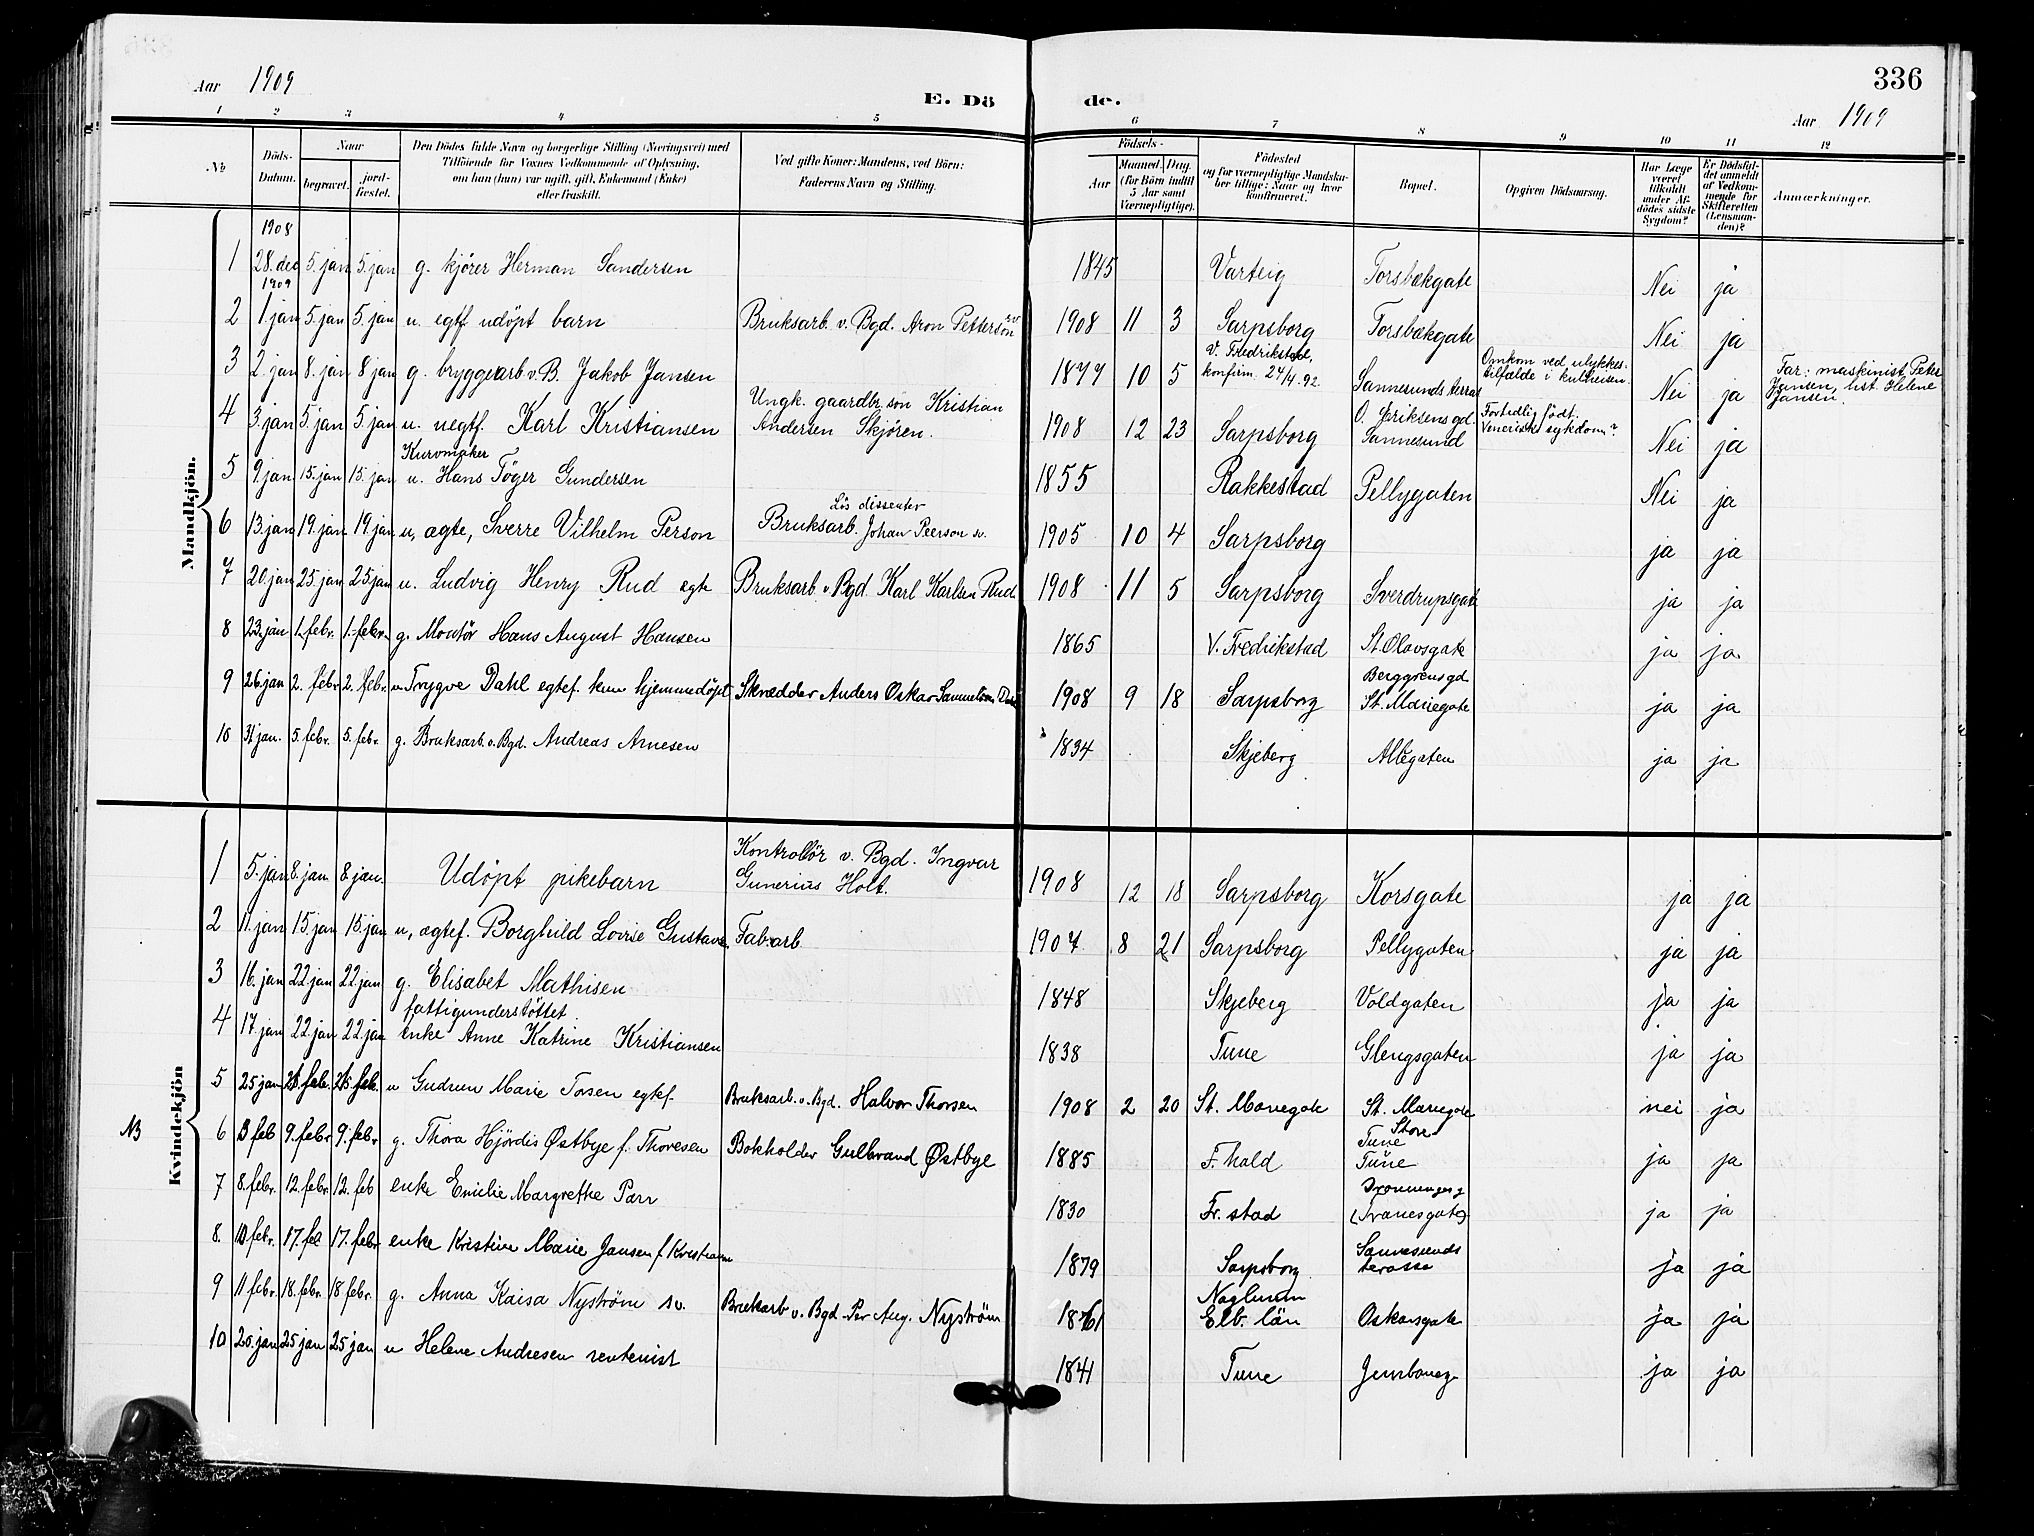 Aar 1909
336
E. Dö de.
Aar 1909
1 2 3 4 5 6 7 8 9 10 11 12
No
Döds-Datum.
Naar
begravet.
jord-fæstet.
Den Dödes fulde Navn og borgerlige Stilling (Næringsvei) med
Tilföiende for Voxnes Vedkommende af Oplysning,
om han (hun) var ugift, gift, Enkemand (Enke)
eller fraskilt.
Ved gifte Koner: Mandens, ved Börn:
Faderens Navn og Stilling.
Födsels-
Aar
Maaned. Dag.
(for Börn indtil
5 Aar samt
Værnepligtige).
Födested
og for værnepligtige Mandska-
ber tillige: Naar og hvor
konfirmeret.
Bopæl.
Opgiven Dödsaarsag.
Har Læge
været
tilkaldt
under Af-
dödes sidste
Sygdom?
Er Dödsfal-
det anmeldt
af Vedkom-
mende for
Skifteretten
(Lensman-
den)?
Anmærkninger.
Mandkjön.
1908
1 28. dec 5. jan 5. jan g. kjører Herman Sandersen 1845 Varteig Torsbækgate Nei ja
1909
2 1. jan 5. jan 5. jan u. egtf. udöpt barn Bruksarb. v. Bgd. Aron Petterson sv. 1908 11 3 Sarpsborg Torsbækgate Nei ja
3 2. jan 8. jan 8 jan g. bryggearb. v. B. Jakob Jansen 1877 10 5 V. Fredrikstad,
konfirm. 24/4. 92. Sannesunds terras Omkom ved ulykkes-
tilfælde i kulheisen. Nei ja Far: maskinist Peter
Jansen, hst. Helene
Jansen.
4 3. jan 5. jan 5. jan u. uegtf. Karl Kristiansen Ungk. gaardbr. sön Kristian
Andersen Skjören. 1908 12 23 Sarpsborg O. Eriksens gd.
Sannesund Fortidlig födt.
Venerisk sykdom? Nei ja
Kurvmaker
5 9. jan 15. jan 15. jan u. Hans Töger Gundersen 1855 Rakkestad Pellygaten Nei ja
6 13. jan 19. jan 19. jan u, ægte, Sverre Vilhelm Person Lös dissenter
Bruksarb. Johan Peerson sv. 1905 10 4 Sarpsborg ja ja
7 20. jan 25. jan 25 jan u. Ludvig Henry Rud egte Bruksarb. v. Bgd. Karl Karlsen Rud 1908 11 5 Sarpsborg Sverdrupsgate ja ja
8 23. jan 1. febr. 1. febr. g. Montör Hans August Hansen 1865 V. Fredrikstad St. Olavsgate ja ja
9 26. jan 2. febr 2. febr. u Trygve Dahl egtef. kun hjemmedöpt Skrædder Anders Oskar Samuelsen 1908 9 18 Sarpsborg Berggrensgd
St. Mariegate ja ja
10 31. jan. 5. febr. 5. febr. g. Bruksarb. v. Bgd. Andreas Arnesen 1834 Skjeberg Allégaten ja ja
Kvindekjön
1 5. jan 8. jan. 8 jan. Udöpt pikebarn Kontrollör v. Bgd. Ingvar
Gunerius Holt. 1908 12 18 Sarpsborg Korsgate ja ja
2 11. jan 15. jan 15. jan u, ægtef. Borghild Lovise Gustavsen Fab:arb. 1907 8 21 Sarpsborg Pellygaten ja ja
3 16. jan 22 jan 22 jan g. Elisabet Mathisen 1848 Skjeberg Voldgaten ja ja
fattigunderstöttet
4 17. jan 22. jan 22. jan enke Anne Katrine Kristiansen 1838 Tune Glengsgaten ja ja
5 25 jan u Gudrun Marie Torsen egtef. Bruksarb. v. Bgd. Halvor Thorsen 1908 2 20 St. Mariegate St. Mariegate nei ja
NB 6 3 feb 9. febr 9. febr g. Thora Hjördis Østbye f. Thoresen Bokholder Gulbrand Østbye 1885 F. hald Store
Tune
Tune ja ja
7 8. febr. 12. febr. 12. feb enke Emilie Margrethe Parr 1830 Fr. stad Dronningensg
(Tranesgate) ja ja
8. 10 febr. 17. feb 17. febr enke Kristine Marie Jansen f. Kristiansen 1879 Sarpsborg Sannesunds
terasse ja ja
9 11 febr. 18. febr. 18 febr. g. Anna Kaisa Nyström sv. Bruksarb v. Bgd Per Aug. Nyström 1861 Naglum
Elb. län Oskarsgate ja ja
10 20. jan 25 jan 25 jan u Helene Andresen rentenist 1841 Tune Jernbaneg. ja ja